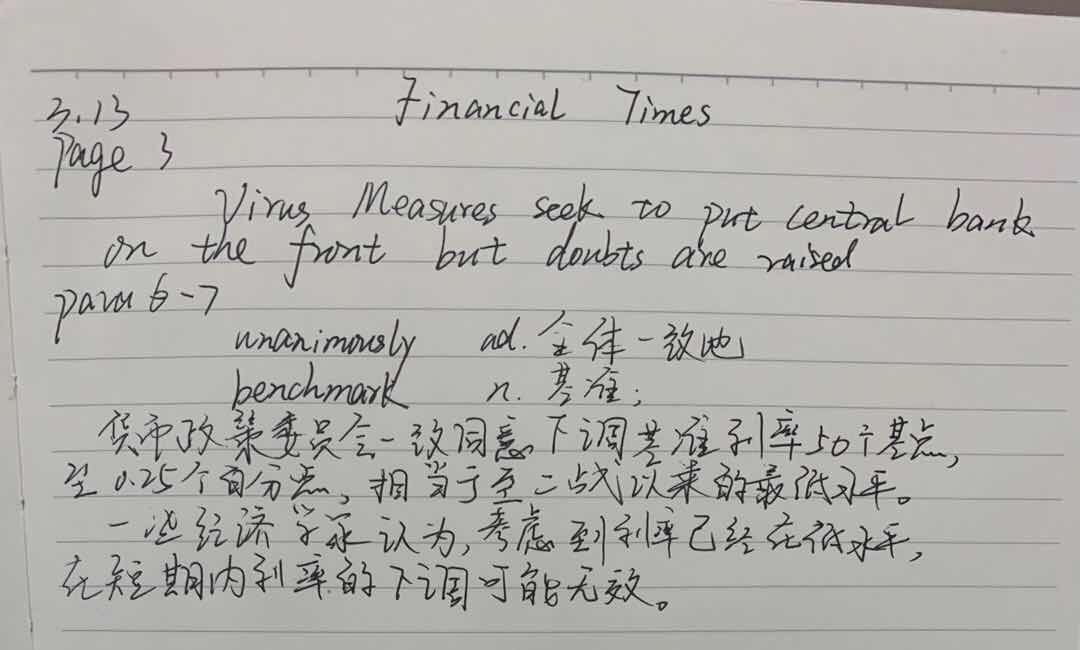 Financial Times
3.13
Page 3
Virus Measures seek to put central bank
on the front but doubts are raised
para 6-7
unanimously ad. 全体一致地
benchmark n. 基准;
货币政策委员会一致同意下调基准利率50个基点,
至0.25个百分点, 相当于至二战以来的最低水平。
一些经济学家认为, 考虑到利率已经在低水平,
在短期内利率的下调可能无效。